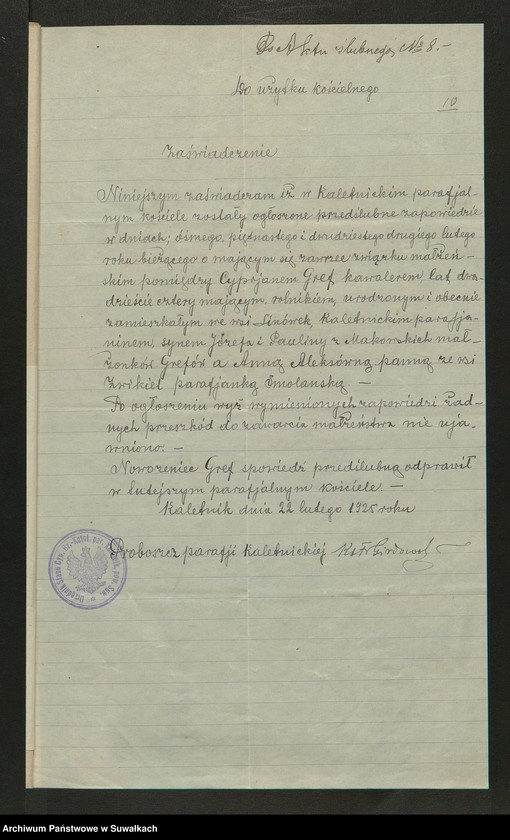 Do Aktu ślubnego № 8.-
Do użytku kościelnego
10
Zaświadczenie
Niniejszym zaświadczam iż w Kaletnickim parafjal-
nym kościele zostały ogłoszone przedślubne zapowiedzie
w dniach; ósmego, piętnastego i dwudziestego drugiego lutego
roku bieżącego o mającym się zawrzeć związku małżeń-
skim pomiędzy Cyprjanem Gref kawalerem, lat dwa-
dzieście cztery mającym, rolnikiem, urodzonym i obecnie
zamieszkałym we wsi Linówek, Kaletnickim parafja-
ninem, synem Józefa i Pauliny z Makowskich mał-
żonków Grefów a Anną Aleksówną panną ze wsi
Żwikiel parafjanką Smolańską —
Po ogłoszeniu wyż wymienionych zapowiedzi żad-
nych przeszkód do zawarcia małżeństwa nie uja-
wniono. —
Nowożeniec Gref spowiedź przedślubną odprawił
w tutejszym parafjalnym kościele. —
Kaletnik dnia 22 lutego 1925 roku
Proboszcz parafji Kaletnickiej Ks
Urzędnik Stanu Cyw. Rz.-Katol. par.
Archiwum Państwowe w Suwałkach